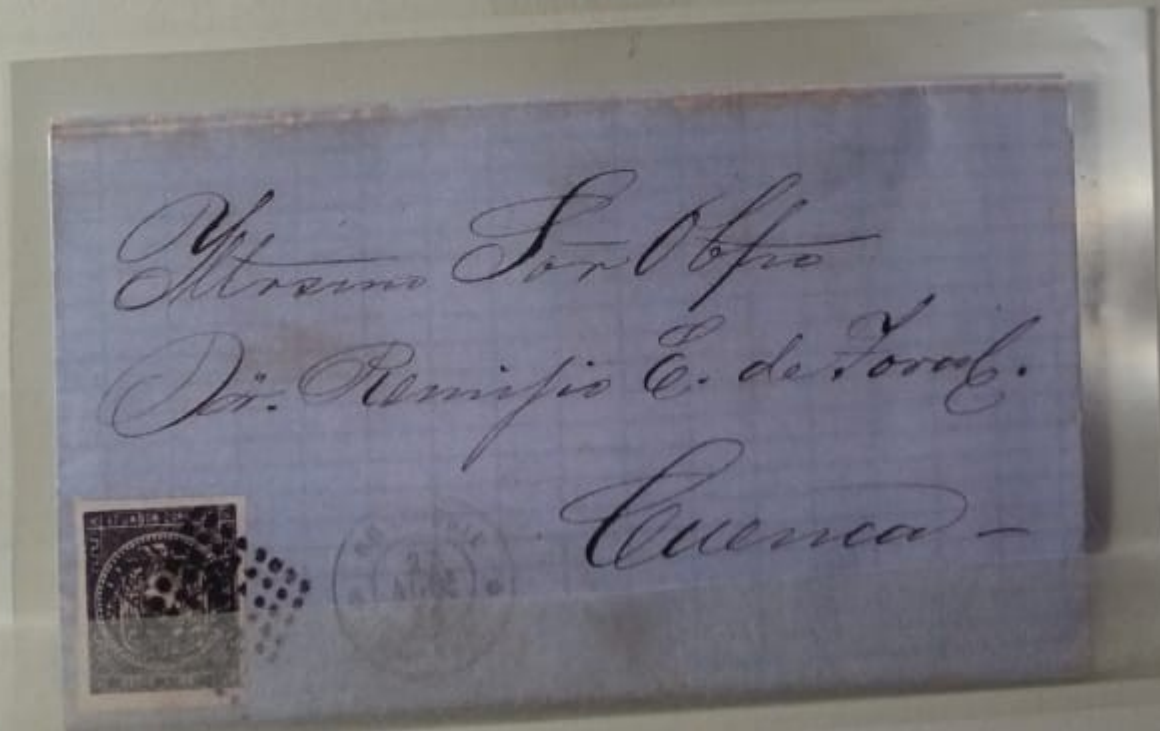 Yltrsimo Sōr Obpo
Dōr. Remigio E. de Toral.
Cuenca -